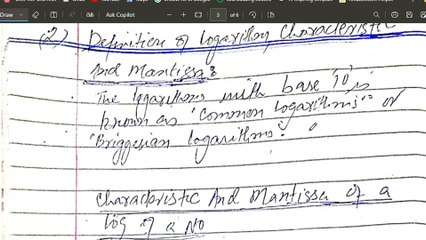 Draw
Ask Copilot
3
of 6
(2) Definition of logarithm Characteristic
And Mantissa:
The logarithms with base '10' is
known as 'Common logarithms" or
'Briggesian logarithms".
Characteristic And Mantissa of a
log of a NO